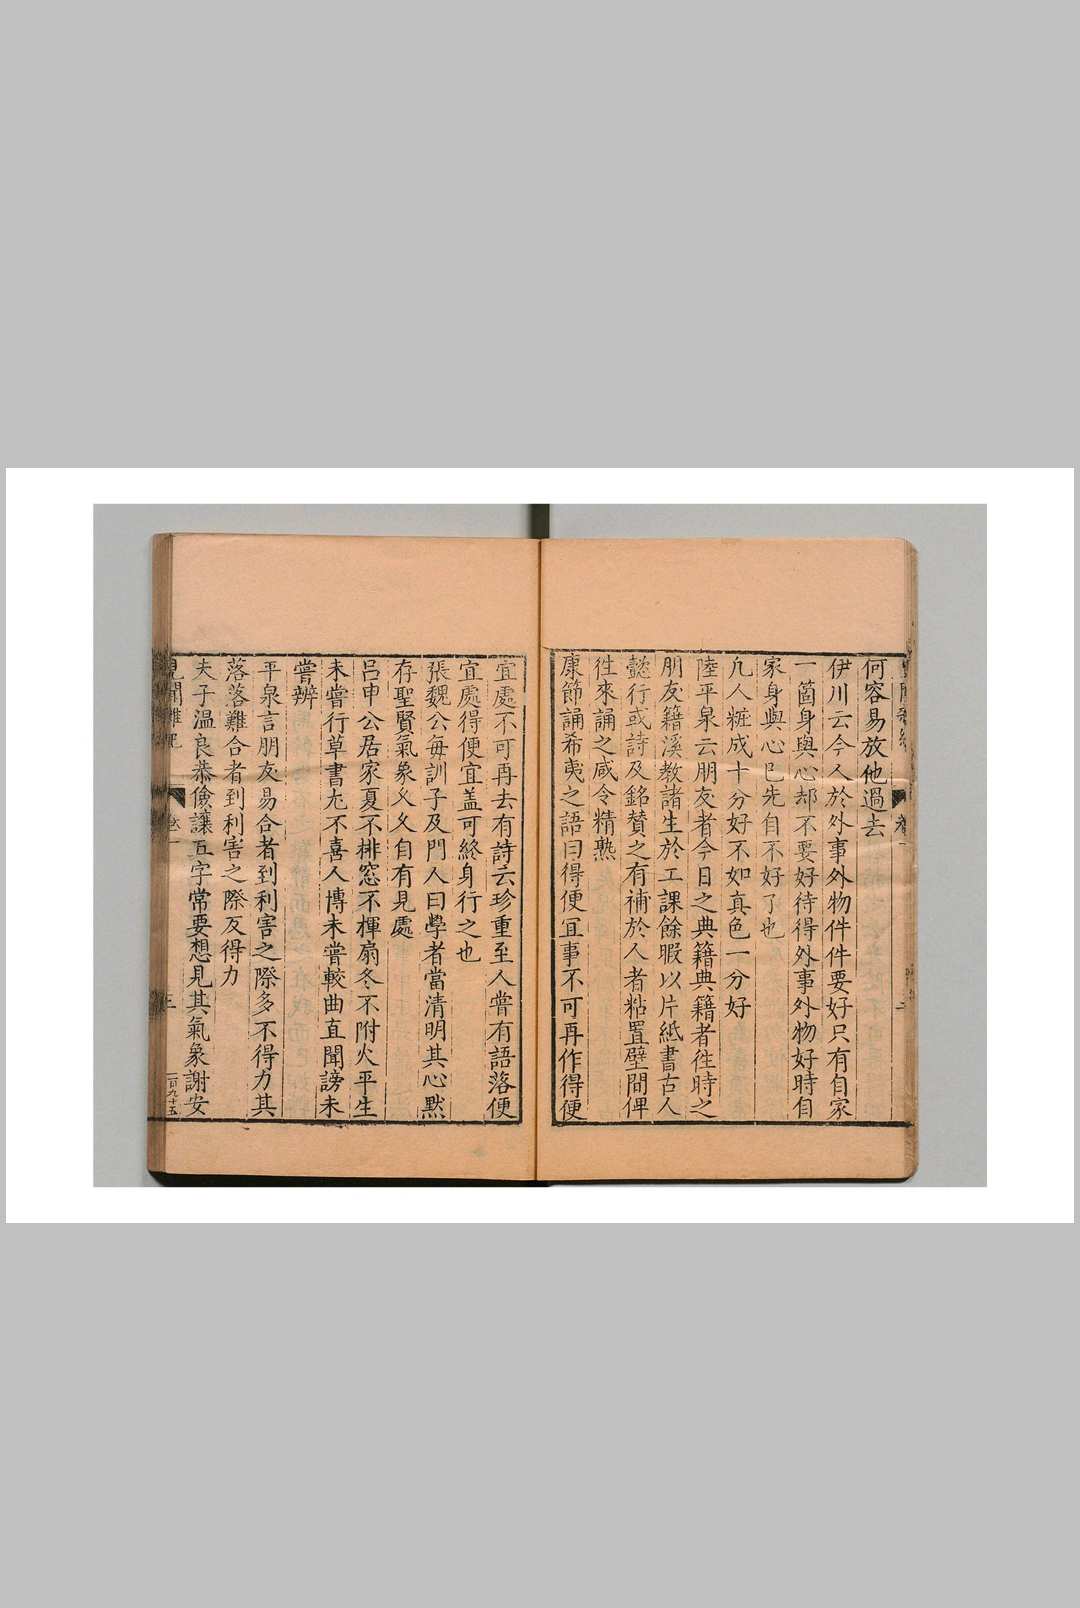 何容易放他過去
伊川云今人於外事外物件件要好只有自家
一箇身與心却不要好待得外事外物好時自
家身與心已先自不好了也
凢人粧成十分好不如真色一分好
陸平泉云朋友者今日之典籍典籍者徃時之
朋友籍溪教諸生於工課餘暇以片紙書古人
懿行或詩及銘賛之有補於人者粘置壁間俾
徃來誦之咸令精熟
康節誦希夷之語曰得便冝事不可再作得便
宜處不可再去有詩云珍重至人嘗有語落便
宜處得便宜盖可終身行之也
張魏公每訓子及門人曰學者當清明其心黙
存聖賢氣象乆乆自有見處
吕申公居家夏不排窓不揮扇冬不附火平生
未嘗行草書尤不喜人博未嘗較曲直聞謗未
嘗辨
平泉言朋友易合者到利害之際多不得力其
落落難合者到利害之際反得力
夫子温良恭儉讓五字常要想見其氣象謝安
見聞雜紀
卷一
三
一百九十五